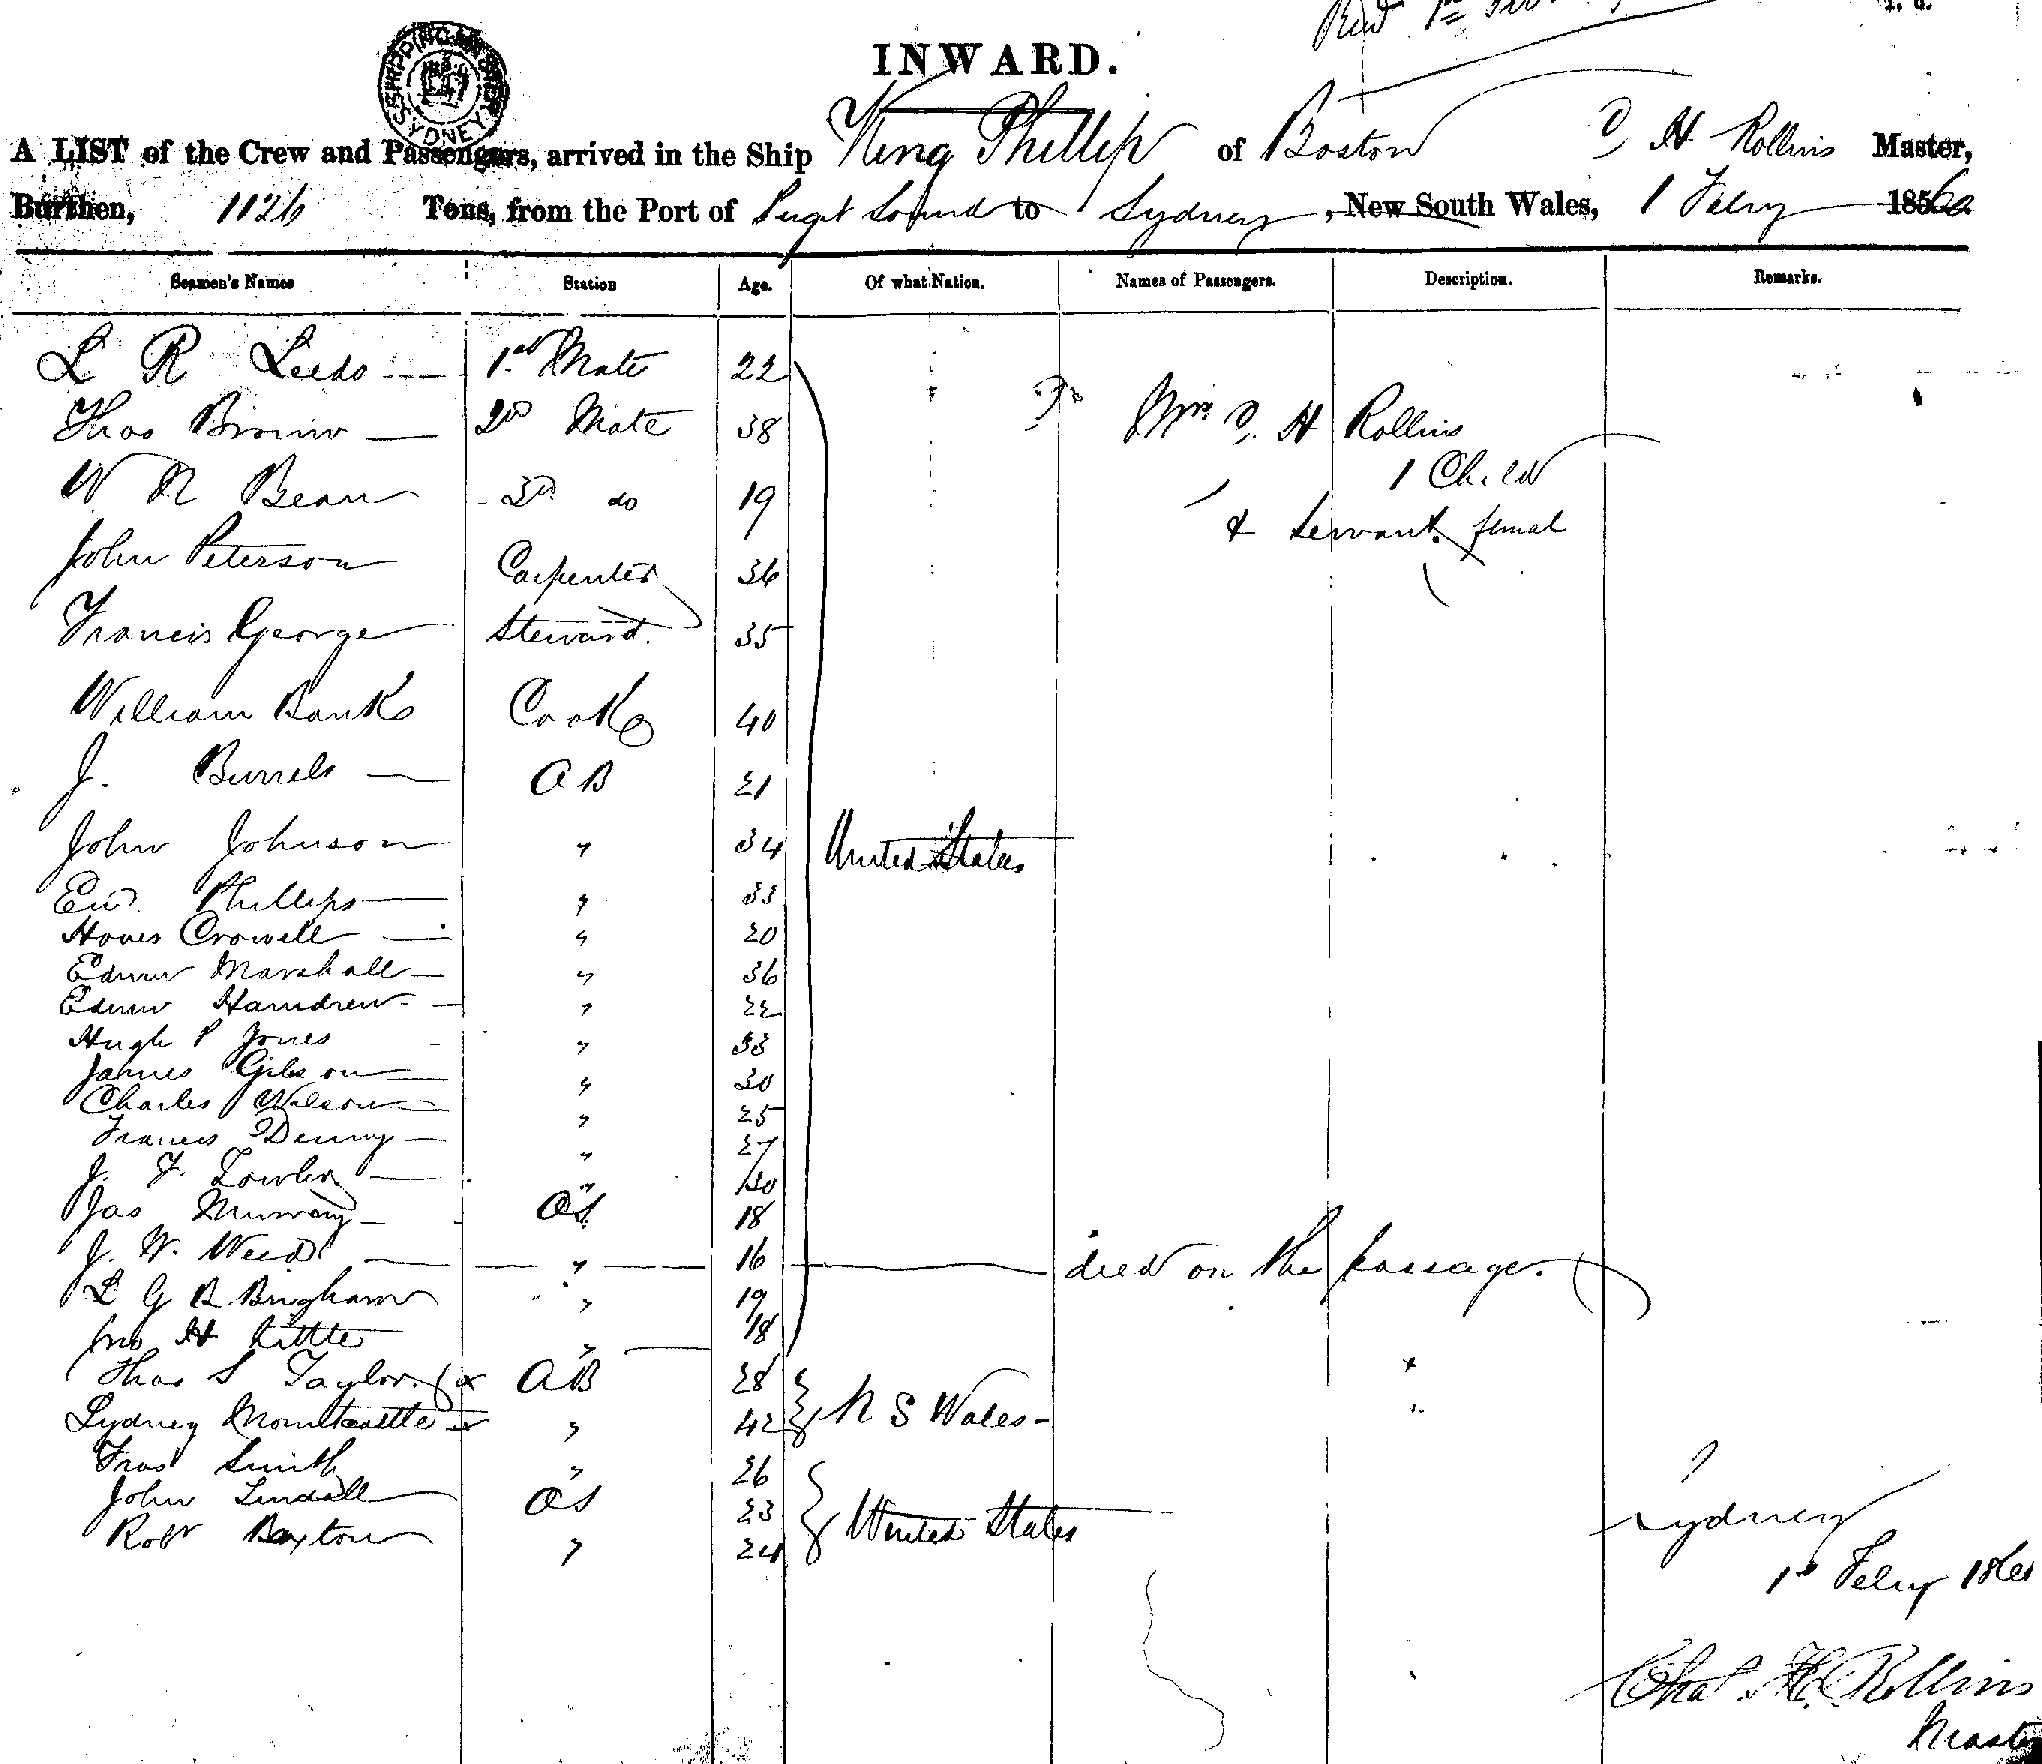 INWARD.
SHIPPING MASTER SYDNEY
A LIST of the Crew and Passengers, arrived in the Ship King Phillip of Boston C H Rollins Master,
Burthen, 1126 Tons, from the Port of Puget Sound to Sydney, New South Wales, 1 Feby 1860
Seamen's Names Station Age. Of what Nation. Names of Passengers. Description. Remarks.
L R Leeds 1st Mate 22
Thos Brown 2D Mate 38 Mrs C. H Rollins
W N Bean 3D do 19 1 Child
John Peterson Carpenter 36 & Servant femal
Francis George Steward. 35
William Banks Cook 40
J. Burrels AB 21
John Johnson " 34 United States
Ed Phillips " 33
Howes Crowell " 20
Edwin Marshall " 36
Edwin Hamdrew " 22
Hugh P Jones " 33
James Gibson " 30
Charles Wilson " 25
Francis Denny " 27
J. F. Fowler " 30
Jas Murray OS 18
J. W. Weed " 16 died on the passage.
L G B Bingham " 19
Jno H Little " 18
Thos S Taylor AB 28 N S Wales
Sydney Mountcastle " 42
Fras Smith " 26
John Lindall OS 23 United States
Robt Boxton " 24
Sydney
1st Feby 1860
Chas. H. Rollins
Master